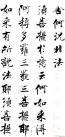 舍何況非法
須菩提於意云何如來得
耨多羅三藐三菩提耶如來
有所說法耶須菩提